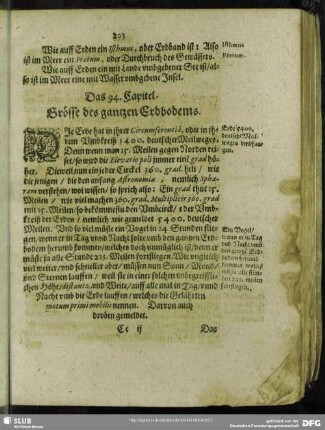 293
Wie auff Erden ein Isthmus, oder Erdband ist: Also
ist im Meer ein Fretum, oder Durchbruch des Gewässers.
Wie auff Erden ein mit Lande vmbgebener See ist/ al-
so ist im Meere eine mit Wasser vmbgebene Insel.
Isthmus
Fretum.
Das 94. Capitel.
Grösse des gantzen Erdbodems.
DIe Erde hat in ihrer Circumferentiâ, oder in ih-
rem Vmbkreiß 5400. deutscher Meilweges.
Denn wenn man 15. Meilen gegen Norden rei-
set/ so wird die Elevatio poli immer ein grad hö-
her. Dieweil nun ein jeder Circkel 360. grad. helt/ wie
die jenigen/ die den anfang Astronomiæ, nemlich Sphæ-
ram verstehen/ wol wissen/ so sprich also: Ein grad thut 15.
Meilen/ wie viel machen 360. grad. Multiplicir 360. grad
mit 15. Meilen/ so bekömmstu den Vmbcirck/ oder Vmb-
kreiß der Erden/ nemlich wie gemeldet 5400. deutscher
Meilen. Vnd so viel müste ein Vogel in 24. Stunden flie-
gen/ wenn er in Tag vnd Nacht solte vmb den gantzen Erd-
bodem herumb kommen/ welches doch vnmüglich ist/ denn er
müste in alle Stunde 225. Meilen fortfliegen. Wie vngleich
viel weiter/ vnd schneller aber/ müssen nun Sonn/ Mond/
vnd Sternen lauffen/ weil sie in einer solchen vnbegreiffli-
chen Höhe/ distantz, vnd Weite/ auff alle mal in Tag/ vnd
Nacht vmb die Erde lauffen/ welches die Gelährten
motum primi mobilis nennen. Darvon auch
droben gemeldet.
Erde 5400.
deutsche Mei-
Ein Vogel/
Cc ij
Das
SLUB
Wir führen Wissen.
http://digital.slub-dresden.de/
gefördert von der
Deutschen Forschungsgemeinschaft